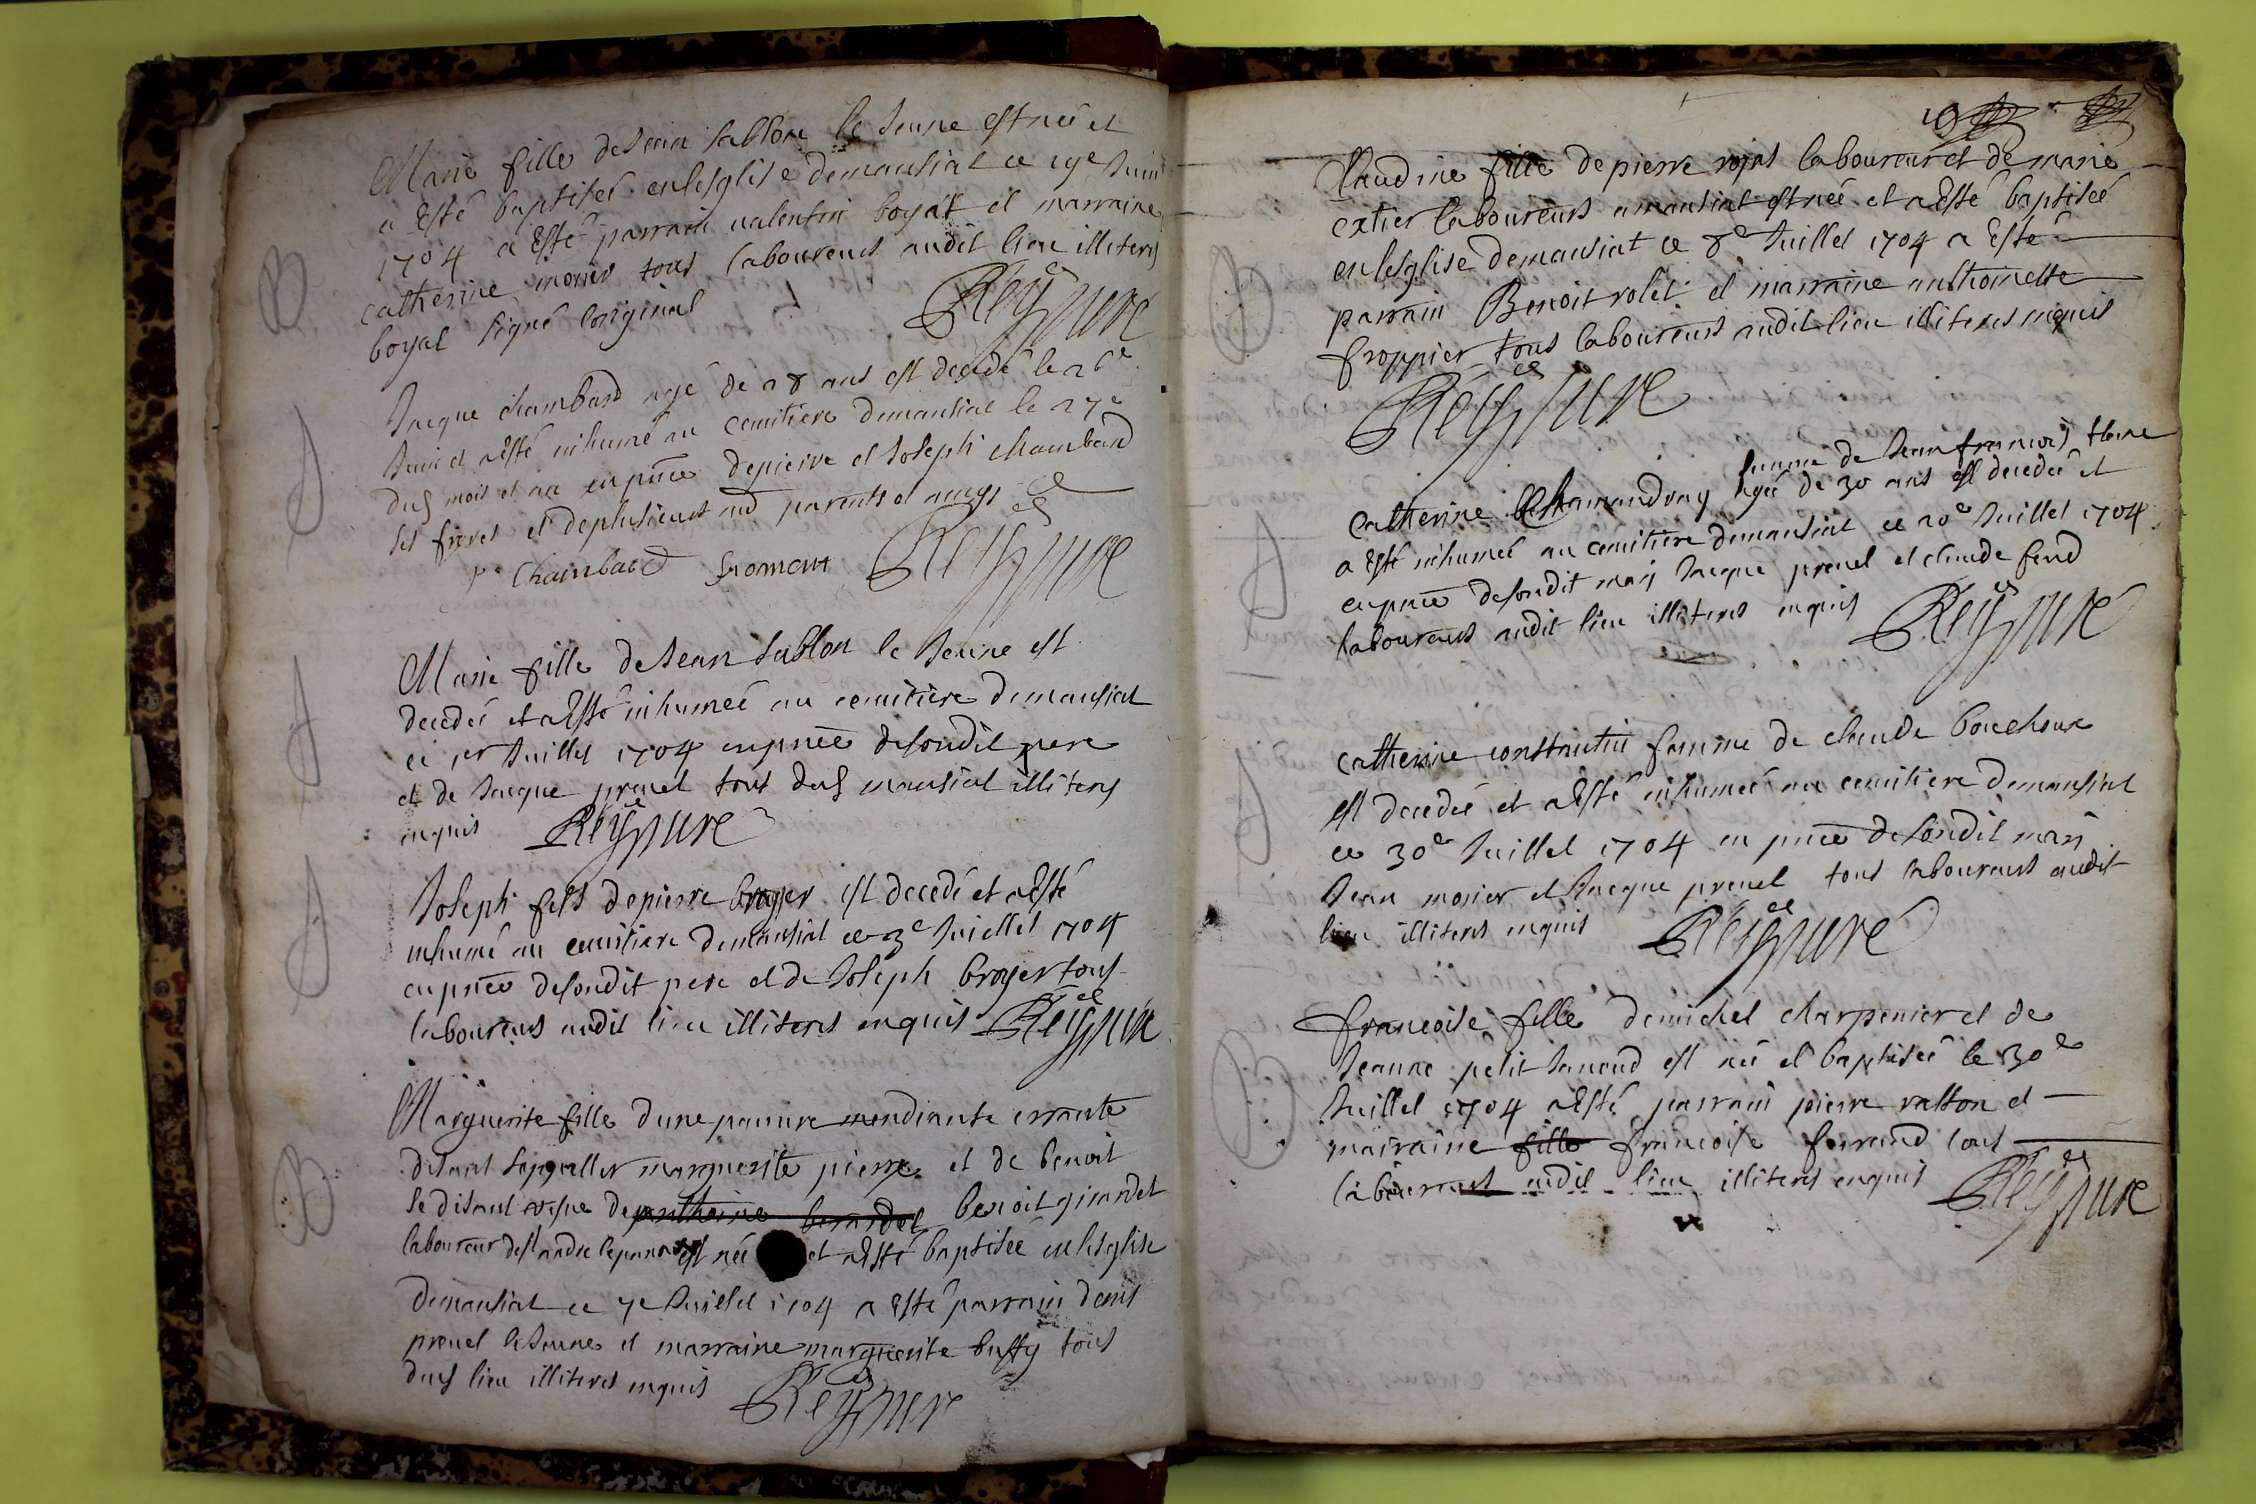 Marie fille de Jean sablon le Jeune est neé et
a Esté baptiseé en lesglise demansiat ce 19e Juin
1704 a Esté parrain valentin boyat et marraine
catherine monier tous laboureurs audit lieu illiterés
boyat signé loriginal
Reyssure
Jacque chambard agé de 28 ans est decedé le 26e
Juin et a Esté inhumé au cemitiere demansiat le 27e
dud mois et an en pnce depierre et Joseph chambard
ses freres et deplusieurs parents et amys
chambard fromont Reyssure
Marie fille de Jean sablon le Jeune est
decedeé et a Esté inhumeé au cemitiere demansiat
ce 1er Juillet 1704 en pnce desondit pere
et de Jacque prevel tous dud mansiat illiterés
enquis Reyssure
Joseph fils depierre broyer est decedé et a Esté
inhumé au cemitiere demansiat ce 3e Juillet 1704
en pnce desondit pere et de Joseph broyer tous
laboureurs audit lieu illiterés enquis Reyssure
Marguerite fille dune pauvre mendiante errante
disant sappeller marguerite pierre et de benoit
se disant de benoit girardet
laboureur dest andre est neé et a Esté baptiseé en lesglise
demansiat ce 7e Juillet 1704 a Esté parrain denis
prevel le Jeune et marraine marguerite buffy tous
dud lieu illiterés enquis
Reyssure
Claudine fille de pierre rojat laboureur et de marie
extier laboureurs a mansiat est neé et a Esté baptiseé
en lesglise demansiat ce 8e Juillet 1704 a Esté
parrain Benoit rolet et marraine anthoinette
froppier tous laboureurs audit lieu illiterés enquis
Reyssure
femme de Jean francois
catherine chamandray ageé de 30 ans est decedeé et
a Esté inhumeé au cemitiere demansiat ce 20e Juillet 1704
en pnce desondit mary Jacque prevel et claude ferd
laboureurs audit lieu illiterés enquis Reyssure
catherine constantin femme de claude bouchoux
est decedeé et a Esté inhumeé au cemitiere demansiat
ce 30e Juillet 1704 en pnce desondit mary
Jean monier et Jacque prevel tous laboureurs audit
lieu illiterés enquis Reyssure
francoise fille demichel charpenier et de
Jeanne petit Janeud est neé et baptiseé le 30e
Juillet 1704 a Esté parrain pierre ratton et
mairaine fille francoise ferrand tous
laboureurs audit lieu illiterés enquis
Reyssure